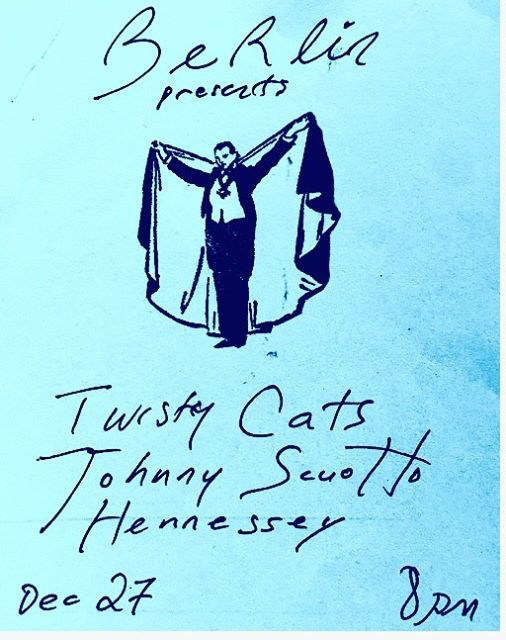 BeRlin
presents
Twisty Cats
Johnny Scuotto
Hennessey
Dec 27
8 pm